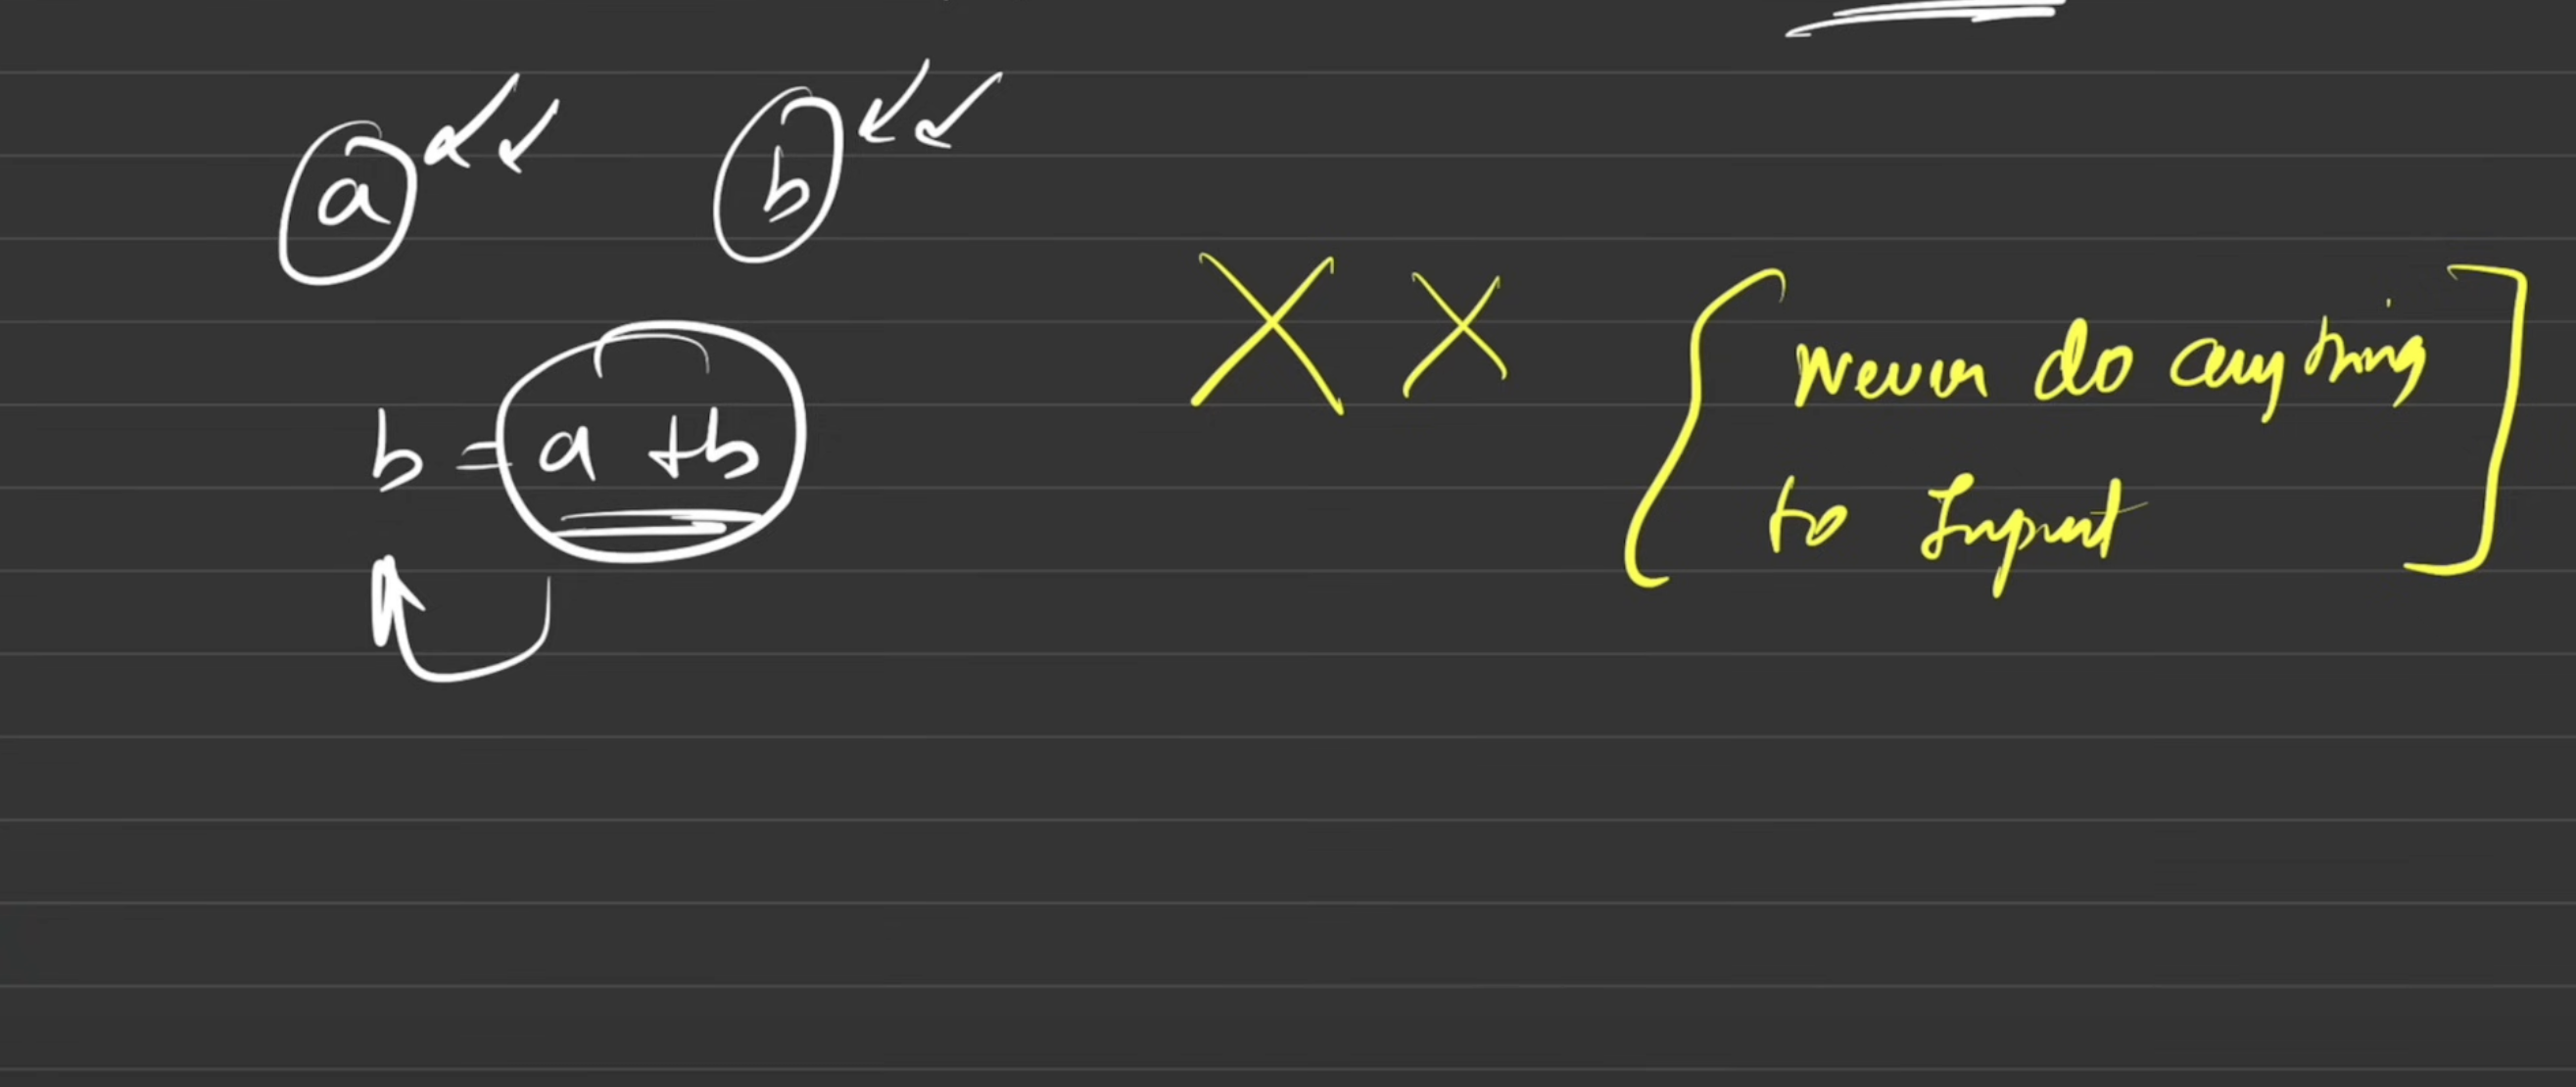 a b
b = a + b
X X
Never do anything
to Input